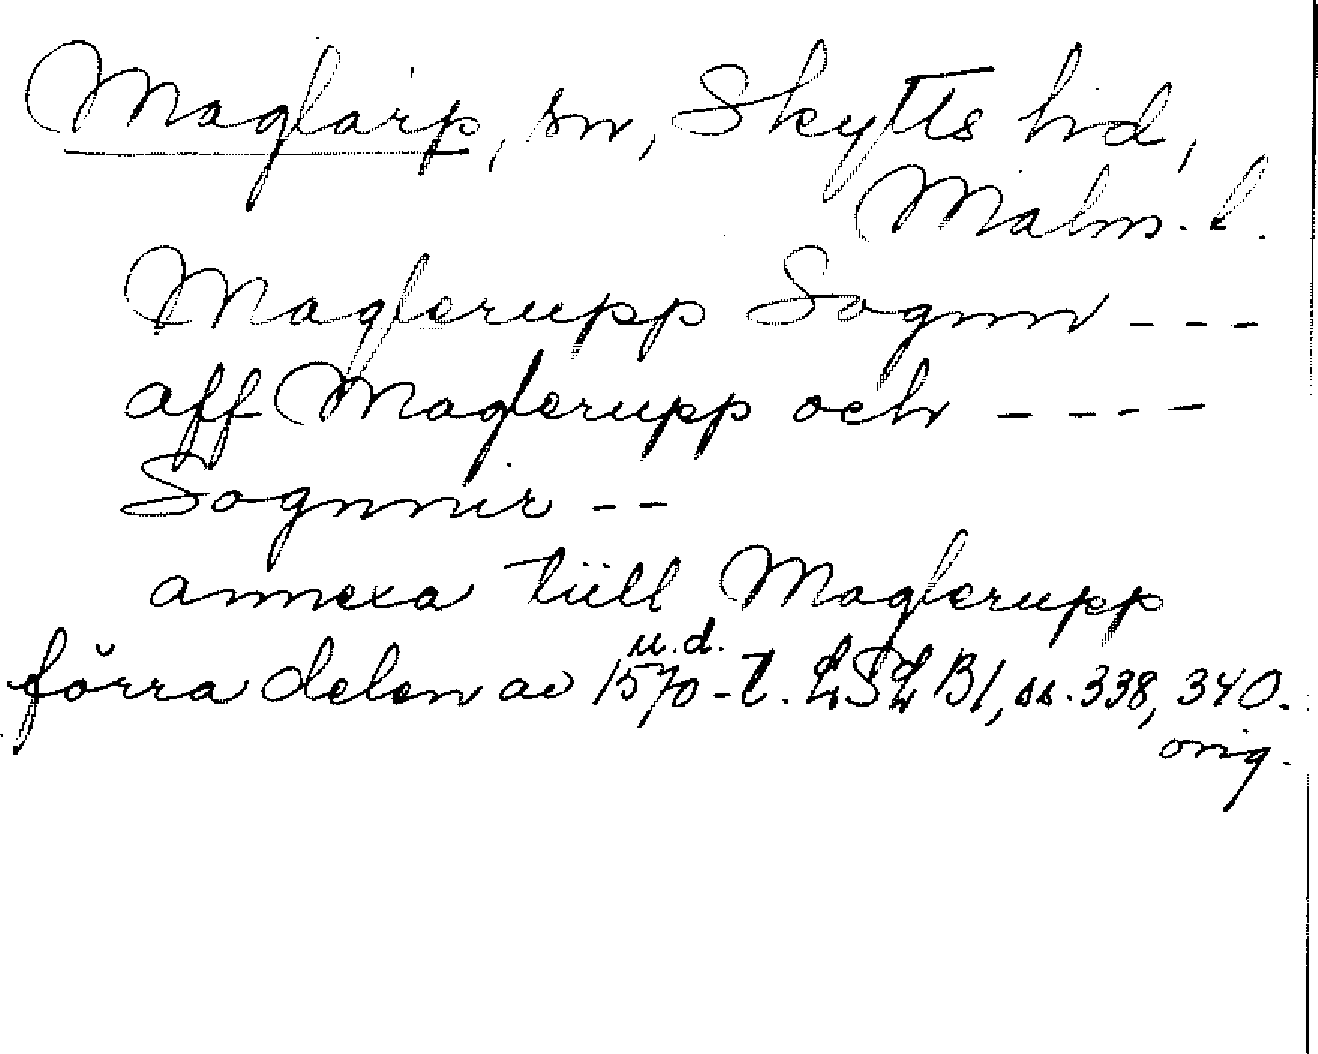 Maglarp, sn, Skytts hd,
Malm. l.
Maglerupp Sognn ---
aff Maglerupp och ----
Sognnir --
annexa tiill Maglerupp
u.d.
förra delen av 1570-t. LSL B1, ss. 338, 340.
orig.